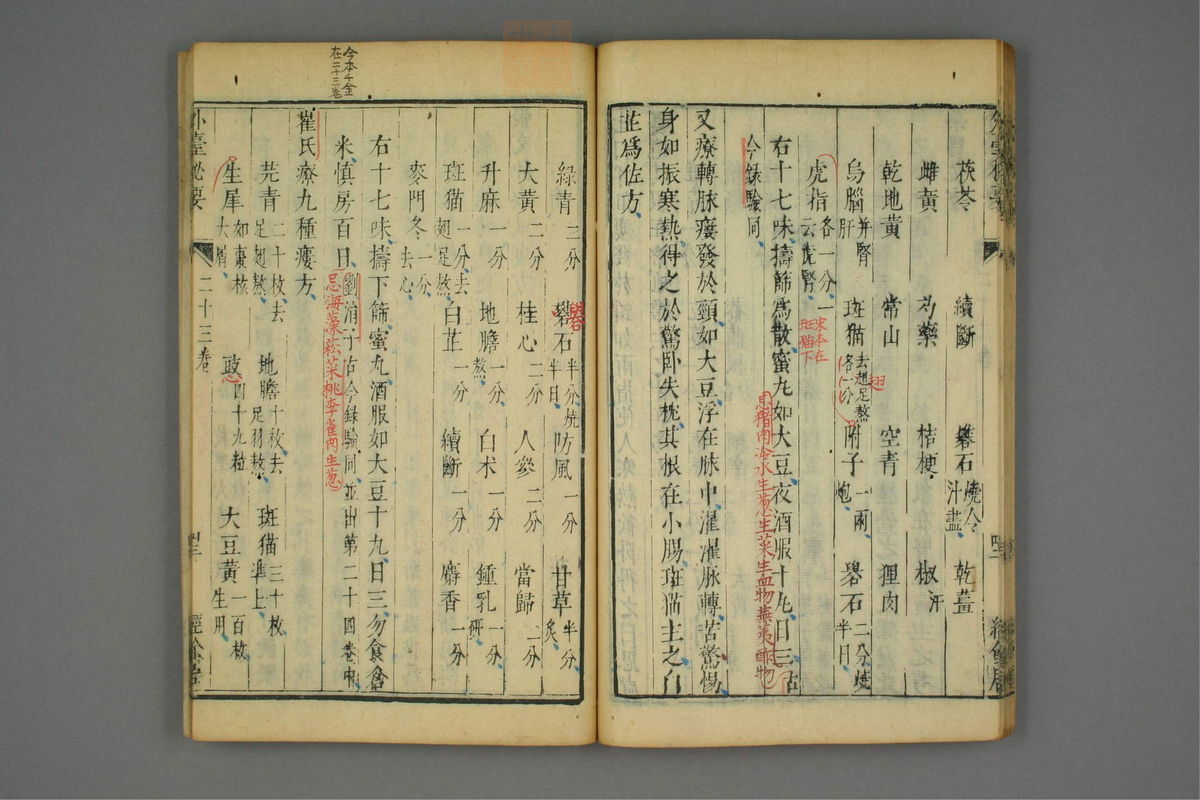 茯苓 續斷 礜石燒令汁盡 乾薑
雌黃 芍藥 桔梗 椒汗
乾地黃 常山 空青 狸肉
烏腦并腎肝 斑猫去趐足熬各一分 附子一兩炮 礜石二分燒半日
翅
虎指各一分一云虎腎
宋本在斑猫下
右十七味擣篩為散蜜丸如大豆夜酒服十丸日三古
忌猪肉冷水生葱生菜生血物蕪荑酢物
今錄驗同
又療轉脉瘻發於頸如大豆浮在脉中濯濯脉轉苦驚惕
身如振寒熱得之於驚卧失枕其根在小腸斑猫主之白
芷為佐方
今本千金在二十三卷
綠青二分 礜石半分燒半日 防風一分 甘草半分炙
礜
大黃二分 桂心二分 人參二分 當歸二分
升麻一分 地膽一分熬 白术一分 鍾乳一分研
斑猫一分去翅足熬 白芷一分 續斷一分 麝香一分
麥門冬一分去心
右十七味擣下篩蜜丸酒服如大豆十丸日三勿食倉
米慎房百日劉涓子古今錄驗同並出第二十四卷中
忌海藻菘菜桃李雀肉生葱
崔氏療九種瘻方
芫青二十枚去足翅熬 地膽十枚去足羽熬 斑猫三十枚準上
生犀如棗核大屑 豉四十九粒 大豆黃一百枚生用
外臺秘要 二十三卷 經餘居